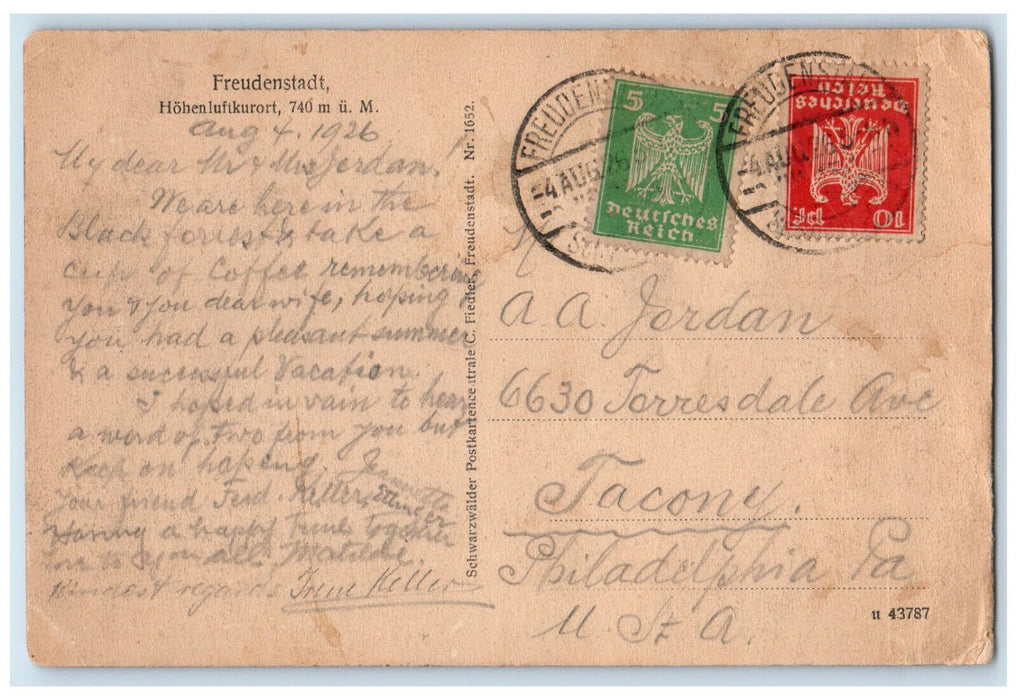 Freudenstadt,
Höhenluftkurort, 740 m ü. M.
Aug 4. 1926
My dear Mr & Mrs Jerdan!
We are here in the
Black forrest & take a
cup of Coffee remembering
you & you dear wife, hoping
you had a pleasant summer
& a successful Vacation.
I hoped in vain to hear
a word of two from you but
keep on hoping.
your friend Ferd. Keller,
Having a happy time together
love to you all Matilde.
Kindest regards Irene Keller
Schwarzwälder Postkartencentrale C. Fiedler, Freudenstadt. Nr. 1652.
5 5
Deutsches
Reich
FREUDENSTADT
-4 AUG. 26
Deutsches
Reich
10 Pf
FREUDENSTADT
-4 AUG. 26
A. A. Jerdan
6630 Torresdale Ave
Tacony.
Philadelphia Pa
U. St A.
u 43787